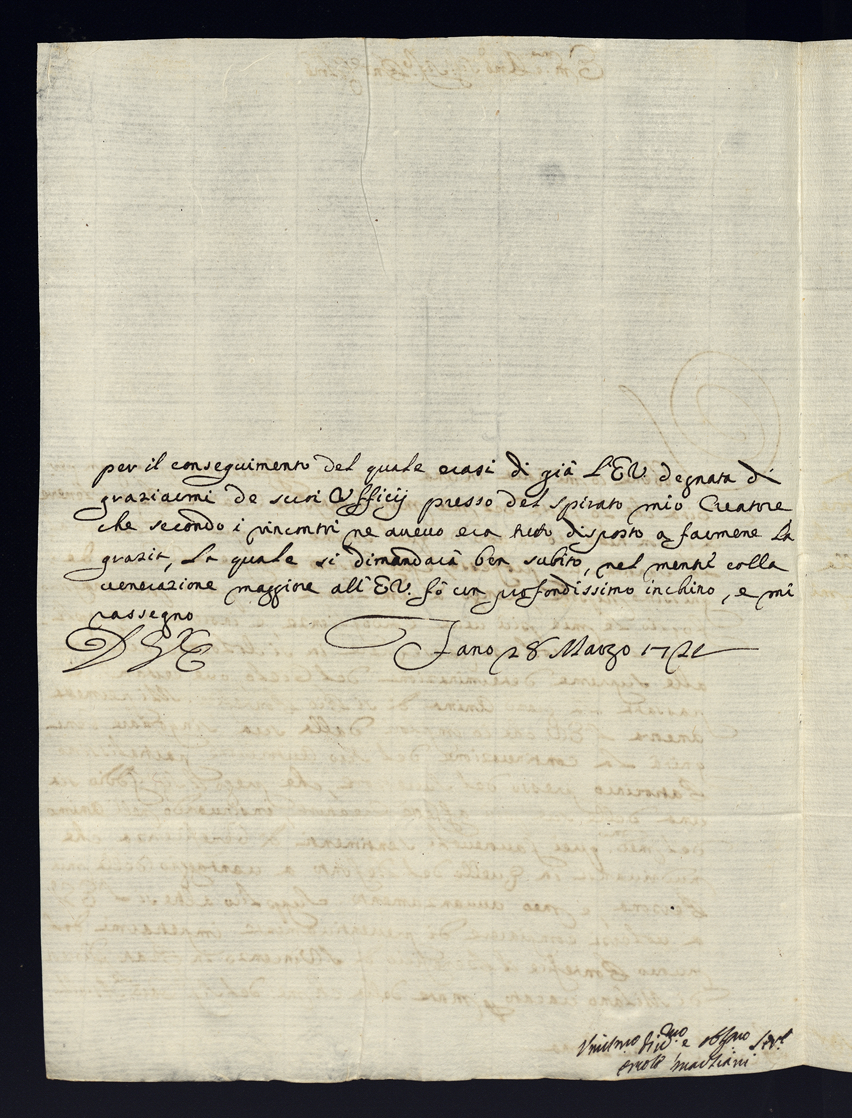 per il conseguimento del quale erasi di già L'EV degnata di
graziarmi de suoi Ufficij presso del spirato mio Creatore
che secondo i rincontri ne avevo era tutto disposto a farmene la
grazia, la quale si dimandarà ben subito, nel mentre colla
venerazione maggiore all'EV. fò un profondissimo inchino, e mi
rassegno
D V E Fano 28 Marzo 1721
e Serv.